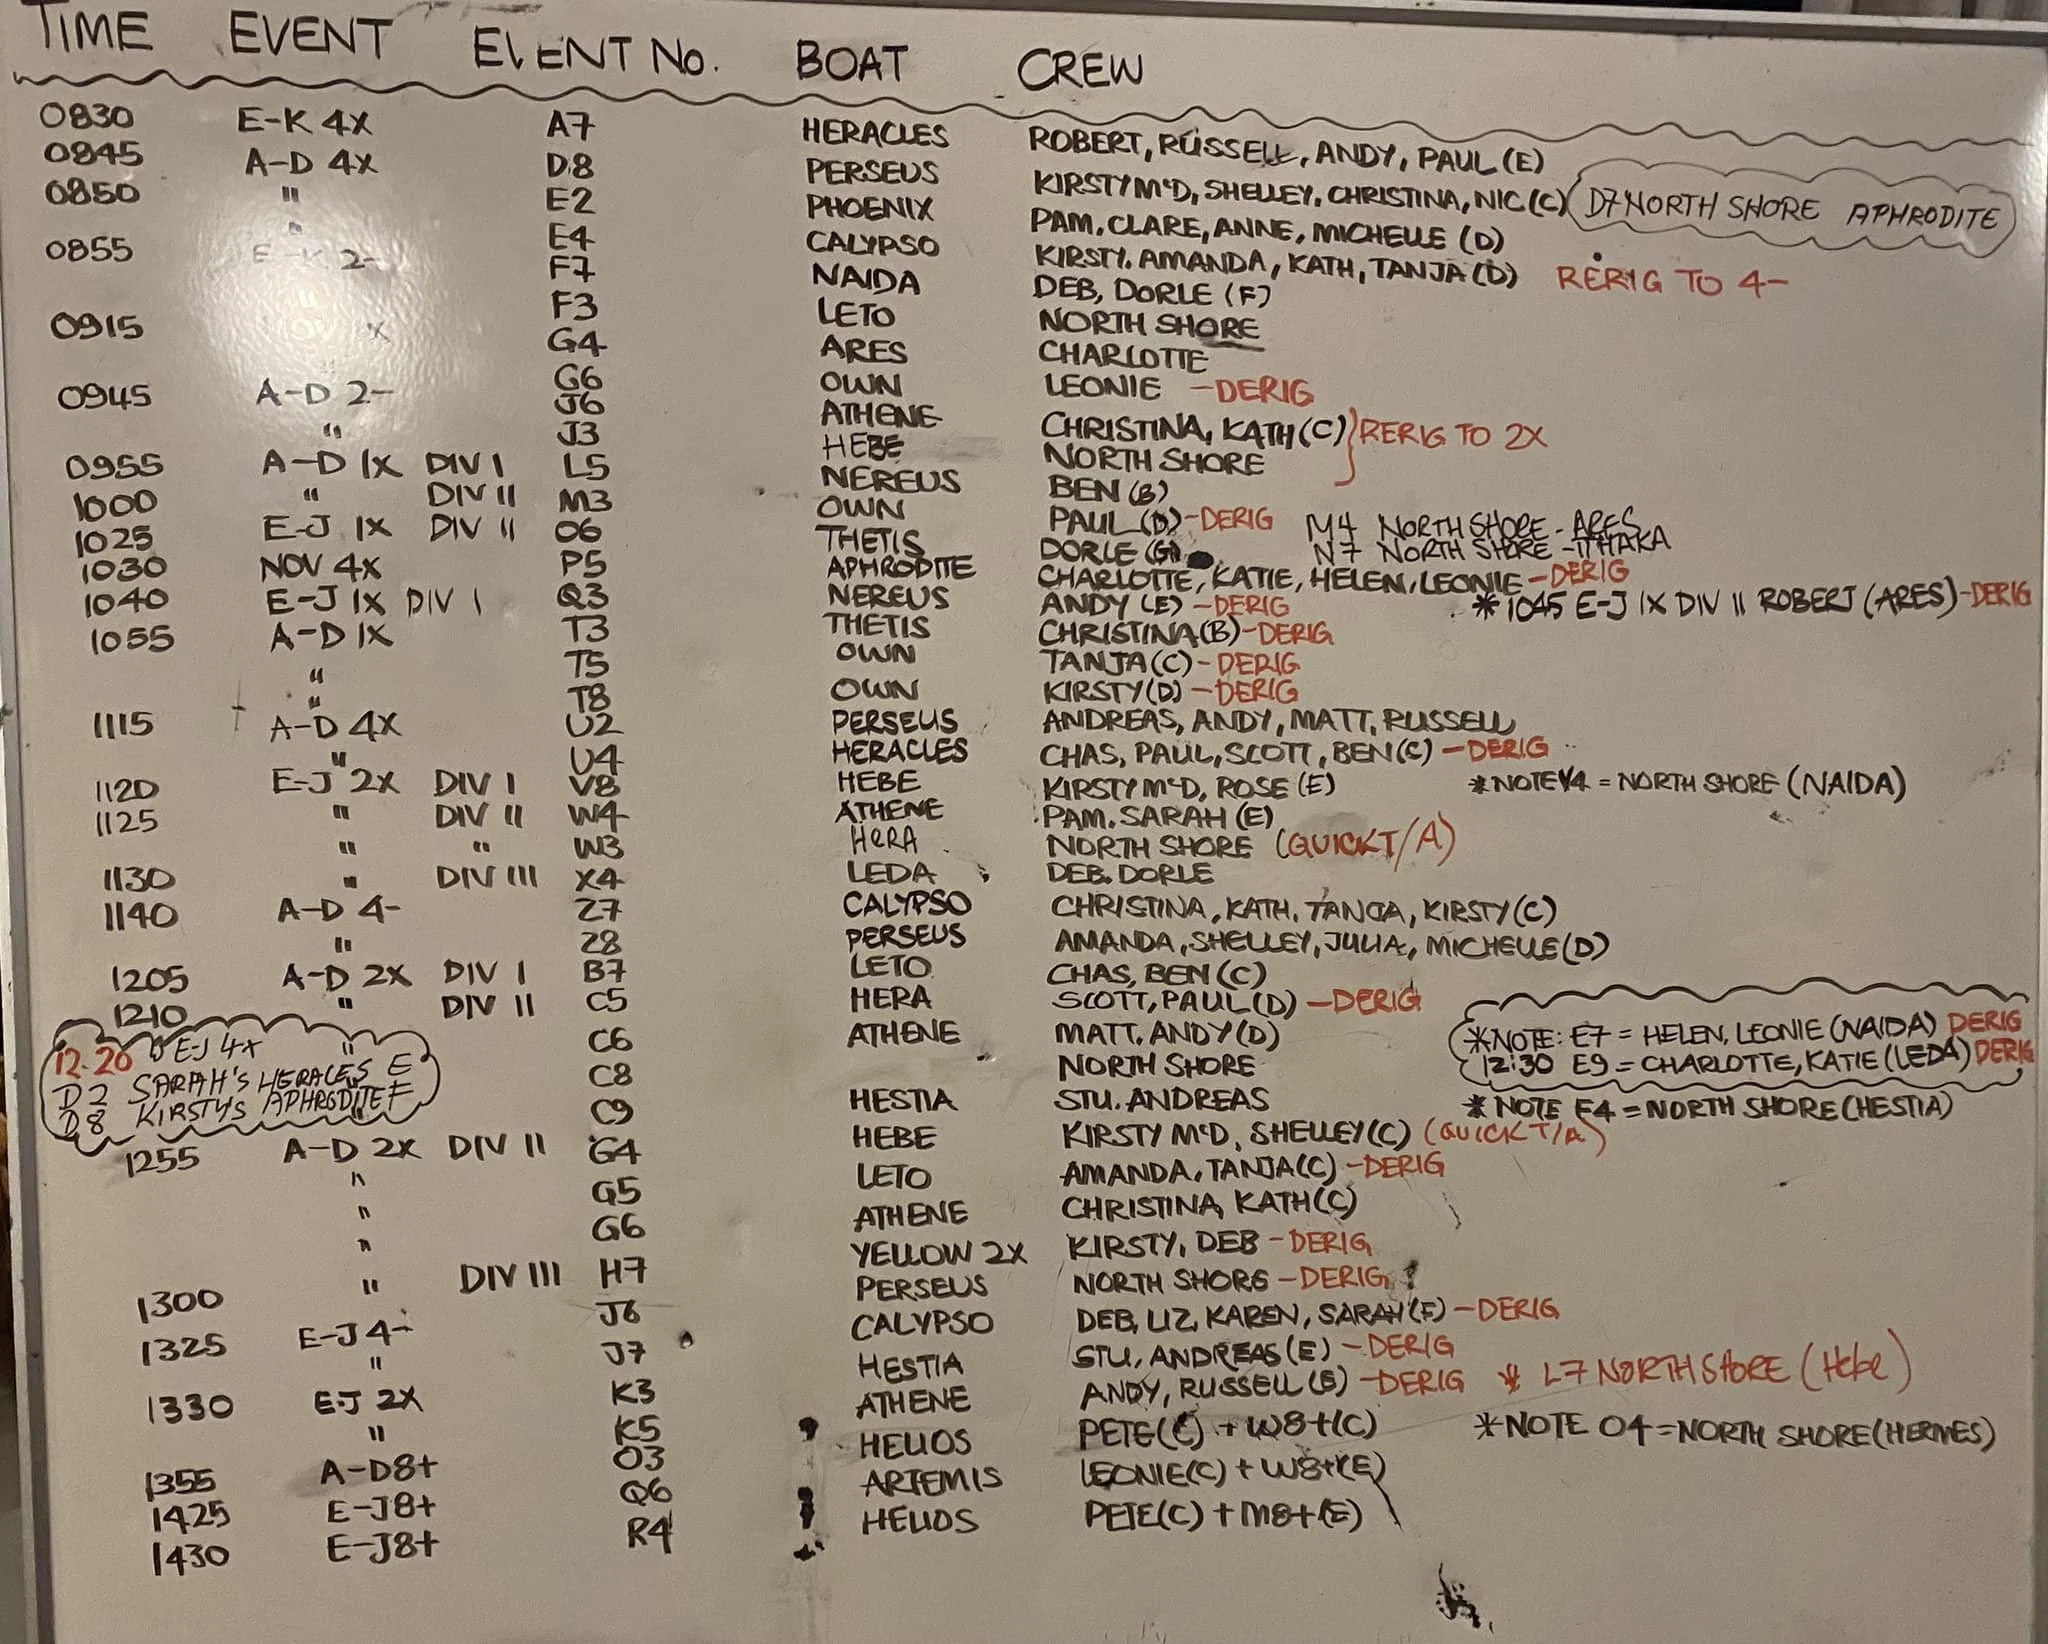 TIME EVENT EVENT No. BOAT CREW
0830 E-K 4X A7 HERACLES ROBERT, RUSSELL, ANDY, PAUL (E)
0845 A-D 4X D8 PERSEUS KIRSTY McD, SHELLEY, CHRISTINA, NIC (C) D7 NORTH SHORE APHRODITE
0850 " E2 PHOENIX PAM, CLARE, ANNE, MICHELLE (D)
" E4 CALYPSO KIRSTY, AMANDA, KATH, TANJA (D) RERIG TO 4-
0855 E-K 2- F7 NAIDA DEB, DORLE (F)
" F3 LETO NORTH SHORE
0915 X G4 ARES CHARLOTTE
" G6 OWN LEONIE -DERIG
0945 A-D 2- J6 ATHENE CHRISTINA, KATH (C) } RERIG TO 2X
" J3 HEBE NORTH SHORE
0955 A-D 1X DIV I L5 NEREUS BEN (B)
1000 " DIV II M3 OWN PAUL (D) -DERIG M4 NORTH SHORE - ARES
1025 E-J 1X DIV II O6 THETIS DORLE (G) N7 NORTH SHORE - ITHAKA
1030 NOV 4X P5 APHRODITE CHARLOTTE, KATIE, HELEN, LEONIE -DERIG
1040 E-J 1X DIV I Q3 NEREUS ANDY (E) -DERIG * 1045 E-J 1X DIV II ROBERT (ARES) -DERIG
1055 A-D 1X T3 THETIS CHRISTINA (B) -DERIG
" T5 OWN TANJA (C) -DERIG
" T8 OWN KIRSTY (D) -DERIG
1115 A-D 4X U2 PERSEUS ANDREAS, ANDY, MATT, RUSSELL
" U4 HERACLES CHAS, PAUL, SCOTT, BEN (C) -DERIG
1120 E-J 2X DIV I V8 HEBE KIRSTY McD, ROSE (E) *NOTE V4 = NORTH SHORE (NAIDA)
1125 " DIV II W4 ATHENE PAM. SARAH (E)
" " W3 HERA NORTH SHORE (QUICK T/A)
1130 " DIV III X4 LEDA DEB. DORLE
1140 A-D 4- Z7 CALYPSO CHRISTINA, KATH, TANJA, KIRSTY (C)
" Z8 PERSEUS AMANDA, SHELLEY, JULIA, MICHELLE (D)
1205 A-D 2X DIV I B7 LETO CHAS, BEN (C)
1210 " DIV II C5 HERA SCOTT, PAUL (D) -DERIG
" C6 ATHENE MATT. ANDY (D)
*NOTE: E7 = HELEN, LEONIE (NAIDA) DERIG
12:30 E9 = CHARLOTTE, KATIE (LEDA) DERIG
12.20 E-J 4X
D2 SARAH'S HERACLES E
D8 KIRSTY'S APHRODITE F
" C8 NORTH SHORE
" C9 HESTIA STU. ANDREAS *NOTE F4 = NORTH SHORE (HESTIA)
1255 A-D 2X DIV II G4 HEBE KIRSTY McD, SHELLEY (C) (QUICK T/A)
" G5 LETO AMANDA, TANJA (C) -DERIG
" G6 ATHENE CHRISTINA, KATH (C)
" YELLOW 2X KIRSTY, DEB -DERIG
1300 " DIV III H7 PERSEUS NORTH SHORE -DERIG
1325 E-J 4- J6 CALYPSO DEB, LIZ, KAREN, SARAH (F) -DERIG
" J7 HESTIA STU, ANDREAS (E) -DERIG
1330 E-J 2X K3 ATHENE ANDY, RUSSELL (E) -DERIG * L7 NORTH SHORE (Hebe)
" K5 HELIOS PETE (C) + W8+ (C) *NOTE O4 = NORTH SHORE (HERMES)
1355 A-D 8+ O3 ARTEMIS LEONIE (C) + W8+ (E)
1425 E-J 8+ Q6 HELIOS PETE (C) + M8+ (E)
1430 E-J 8+ R4